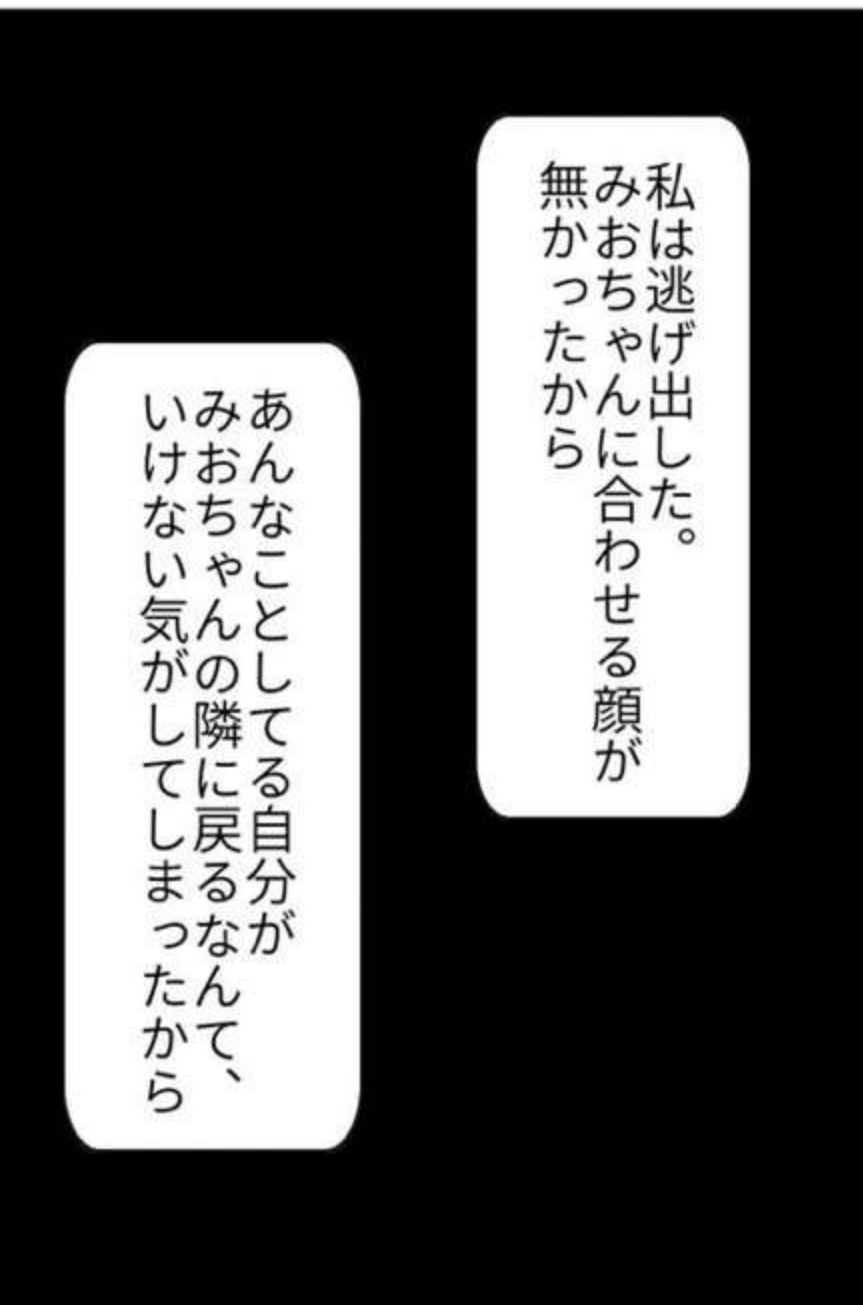 私は逃げ出した。
みおちゃんに合わせる顔が
無かったから
あんなことしてる自分が
みおちゃんの隣に戻るなんて、
いけない気がしてしまったから